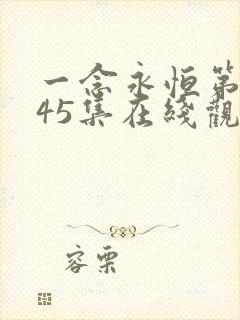 一念永恒第
45集在綫觀
容栗